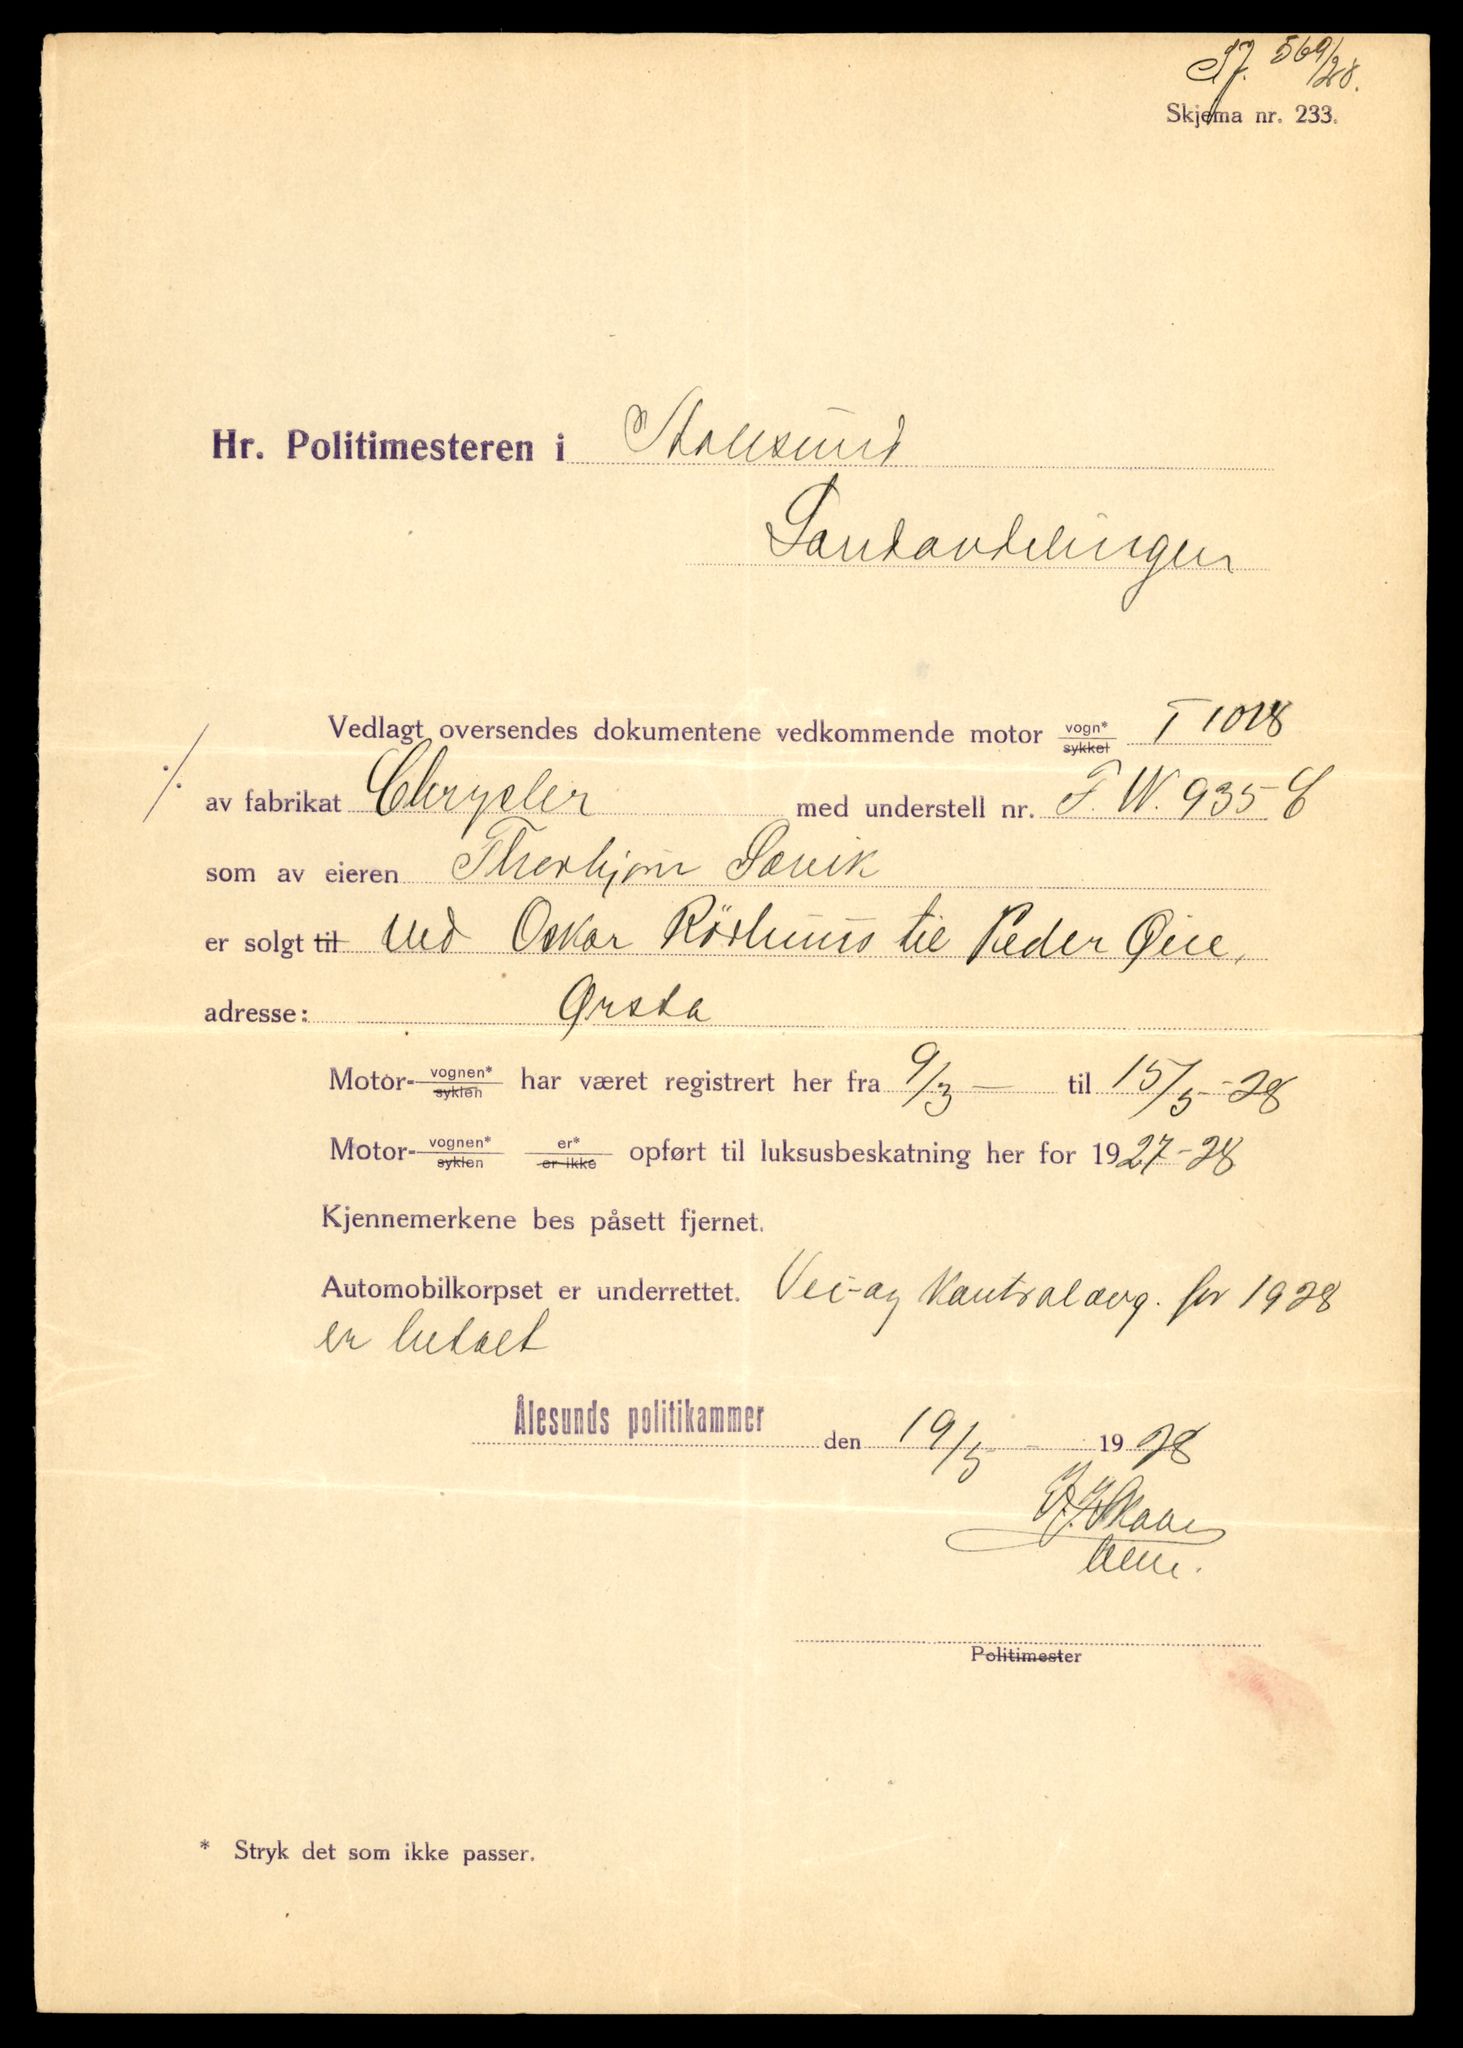 569/28.
Skjema nr. 233.
Hr. Politimesteren i Aalesund
Landavdelingen
Vedlagt oversendes dokumentene vedkommende motor vogn* sykkel T 1028
av fabrikat Chrysler med understell nr. F.W. 935 C
som av eieren Thorbjørn Søvik
er solgt til ved Oskar Rörhuus til Peder Øie,
adresse: Ørsta
Motor- vognen* syklen har været registrert her fra 9/3 — til 15/5-28
Motor- vognen* syklen er* er ikke opført til luksusbeskatning her for 1927-28
Kjennemerkene bes påsett fjernet.
Automobilkorpset er underrettet. Vei-og Kontrolavg. for 1928
er betalt
Ålesunds politikammer den 19/5 - 1928
Politimester
* Stryk det som ikke passer.